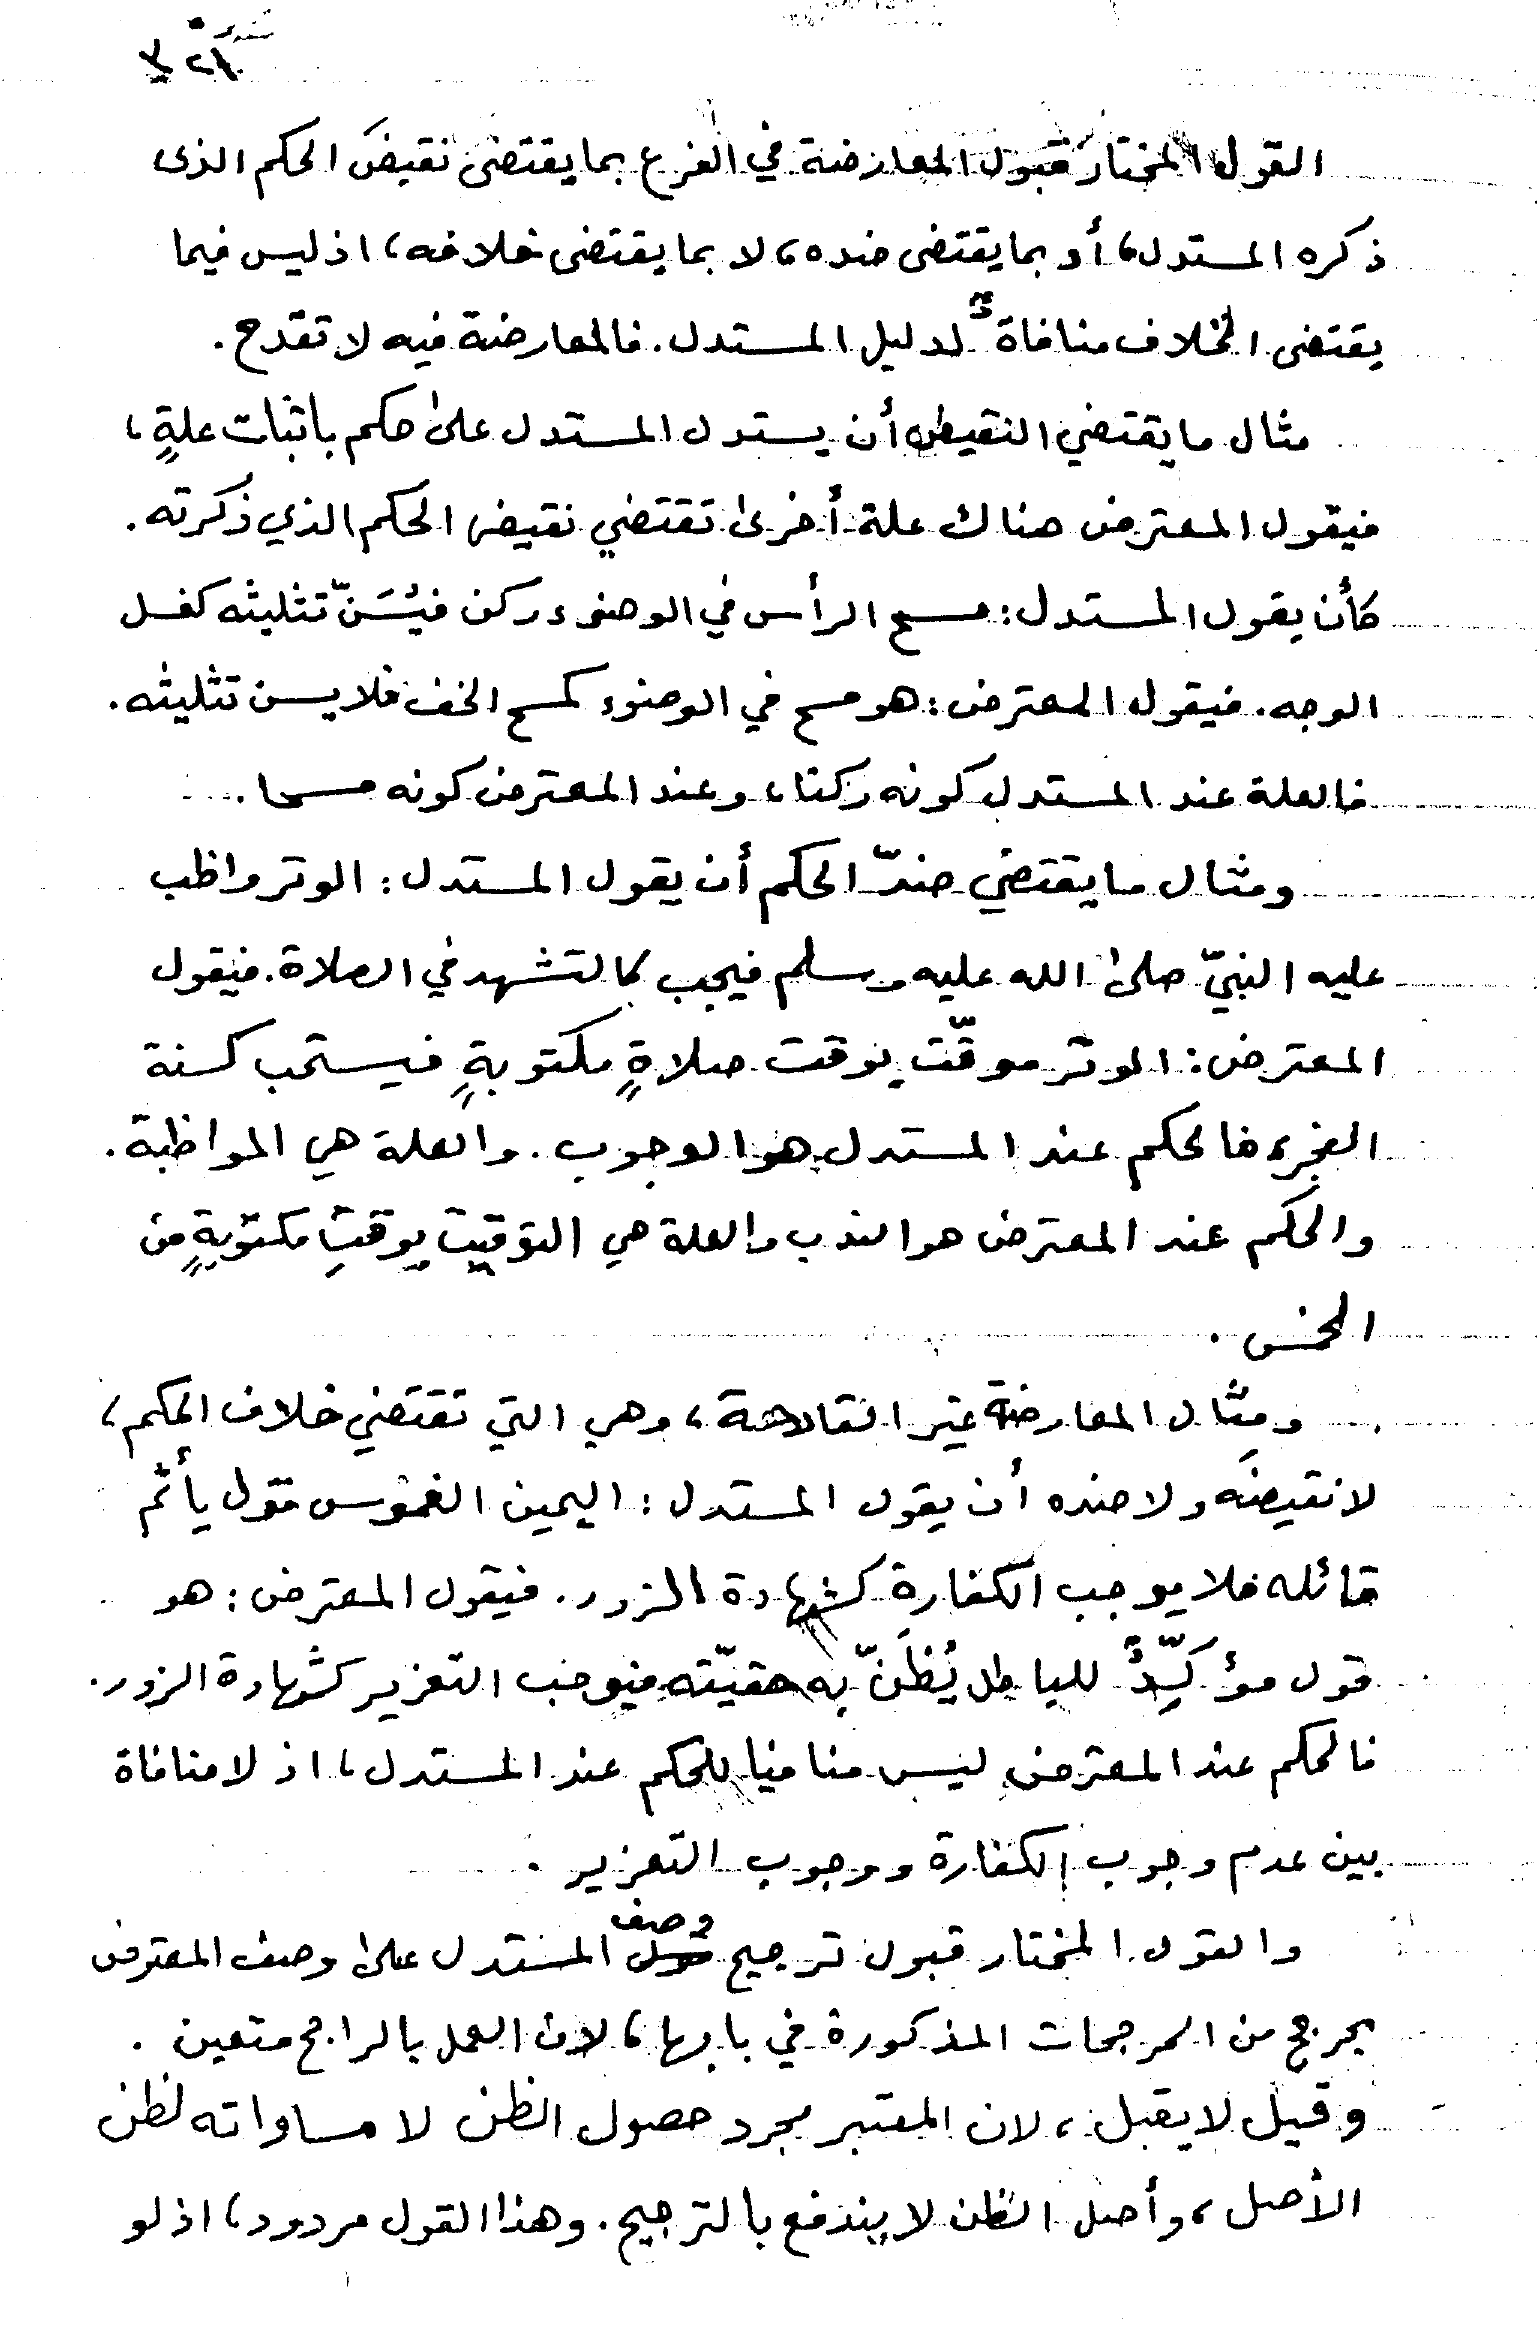 القول المختار قبول المعارضة في الفرع بما يقتضى نقيضَ الحكم الذى
ذكره المستدل، أو بما يقتضى ضده، لا بما يقتضى خلافه، اذ ليس فيما
يقتضى الخلاف منافاةٌ لدليل المستدل. فالمعارضة فيه لا تقدح.
مثال ما يقتضي النقيض أن يستدل المستدل على حكم باثبات علةٍ،
فيقول المعترض هناك علة أخرى تقتضي نقيض الحكم الذي ذكرته.
كأن يقول المستدل: مسح الرأس في الوضوء ركن فيُسَنّ تثليثه كغسل
الوجه. فيقول المعترض: هو مسح في الوضوء كمسح الخف فلا يسن تثليثه.
فالعلة عند المستدل كونه ركنا، وعند المعترض كونه مسحا.
ومثال ما يقتضي ضدّ الحكم أن يقول المستدل: الوتر واظب
عليه النبيّ صلى الله عليه وسلم فيجب كالتشهد في الصلاة. فيقول
المعترض: الوتر موقّت بوقت صلاةٍ مكتوبةٍ فيستحب كسنة
الفجر، فالحكم عند المستدل هو الوجوب. والعلة هي المواظبة.
والحكم عند المعترض هو الندب والعلة هي التوقيت بوقتِ مكتوبةٍ من
الخمس.
ومثال المعارضة غير القادحة، وهي التي تقتضي خلاف الحكم،
لا نقيضَه ولا ضده أن يقول المستدل: اليمين الغموس قول يأثم
قائله فلا يوجب الكفارة كشهادة الزور. فيقول المعترض: هو
قول مؤكِّدٌ للباطل يُظَنّ به حقيّته فيوجب التعزير كشهادة الزور.
فالحكم عند المعترض ليس منافيا للحكم عند المستدل، اذ لا منافاة
بين عدم وجوب الكفارة ووجوب التعزير.
والقول المختار قبول ترجيح وصف المستدل على وصف المعترض
بمرجح من المرجحات المذكورة في بابها، لان العمل بالراجح متعين.
وقيل لا يقبل، لان المعتبر مجرد حصول الظن لا مساواته لظن
الأصل، وأصل الظن لا يندفع بالترجيح. وهذا القول مردود، اذ لو